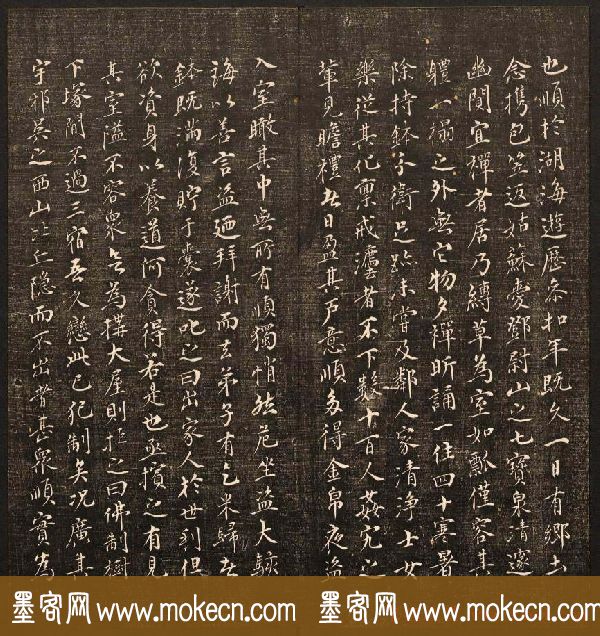 也順於湖海遊歷叅扣年既久一日有鄉土
念携包笠返姑蘇愛鄧尉山之七寶泉清邃
幽閒宜禪者居乃縛草為室如瓢僅容其
軆小榻之外無它物夕禪昕誦一住四十寒暑
除持鉢分衛足跡未嘗及鄰人家清浄士女
樂從其化稟戒灋者不下數十百人姦宄之
輩見瞻禮者日盈其戶意順多得金帛夜盜
入室瞰其中無所有順獨悄然危坐盜大駭
誨以善言盜廼拜謝而去弟子有乞米歸者
鉢既滿復貯于囊遂叱之曰出家人於世利但
欲資身以養道何貪得若是也亟擯之有見
其室隘不容衆為搆大屋則拒之曰佛制樹
下塚間不過三宿吾久戀此已犯制矣况廣其
宇邪吴之西山比丘隱而不出者甚衆順實為
墨客网 www.mokecn.com 墨客网 www.mokecn.com